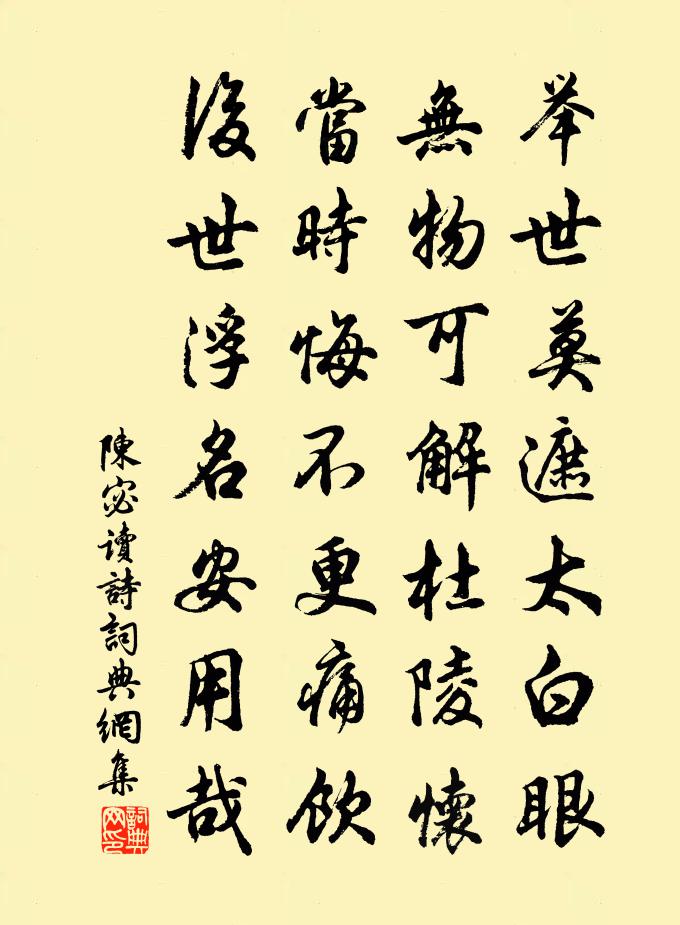 举世莫遮太白眼
無物可解杜陵懷
當時悔不更痛飲
後世浮名安用哉
陳宓讀詩詞典網集
詞典网印